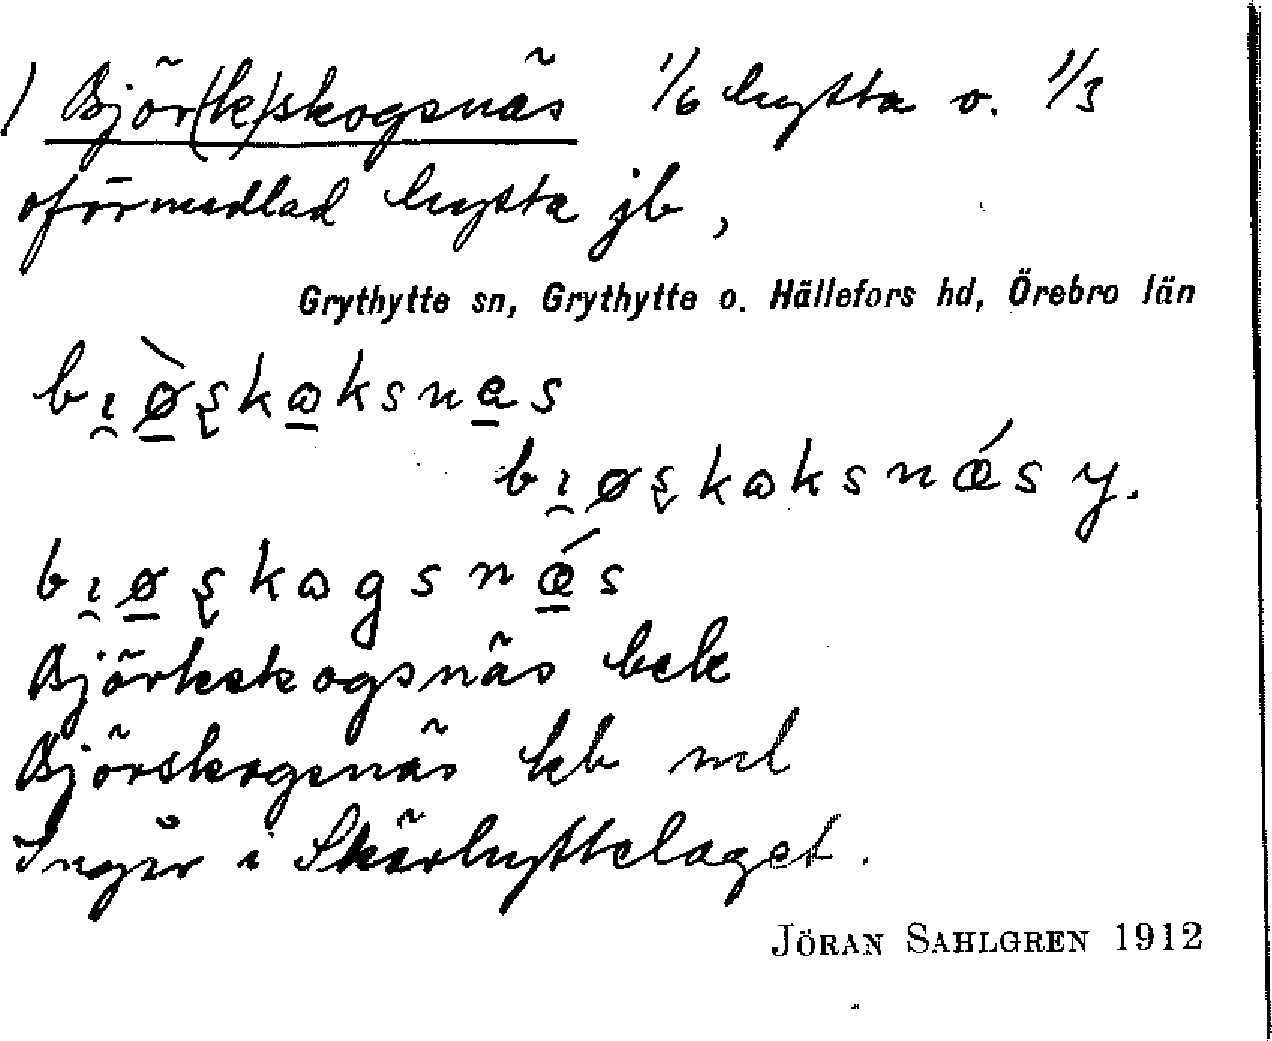 1) Björ(k)skogsnäs 1/6 hytta o. 1/3
oförmedlad hytta jb,
Grythytte sn, Grythytte o. Hällefors hd, Örebro län
bı̯ø̠̀ʂkɷ̠ksnæ̠s
bı̯øʂkɷksnǽs y.
bı̯ø̠ʂkɷgsnǽ̠s
Björkskogsnäs bek
Björskogsnäs kb ml
Ingår i Skärhyttelaget.
JÖRAN SAHLGREN 1912